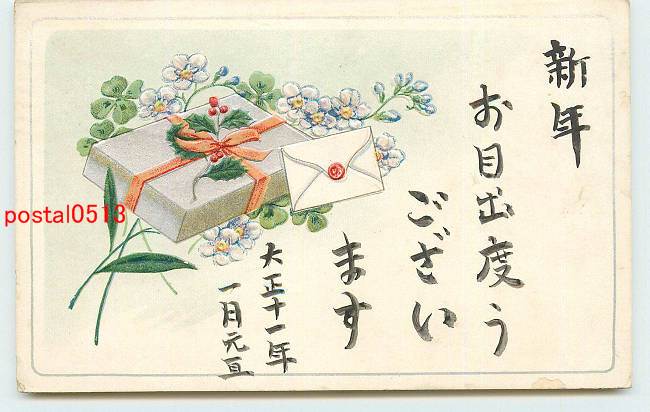 新年
お目出度う
ござい
ます
大正十一年
一月元亘
postal0513